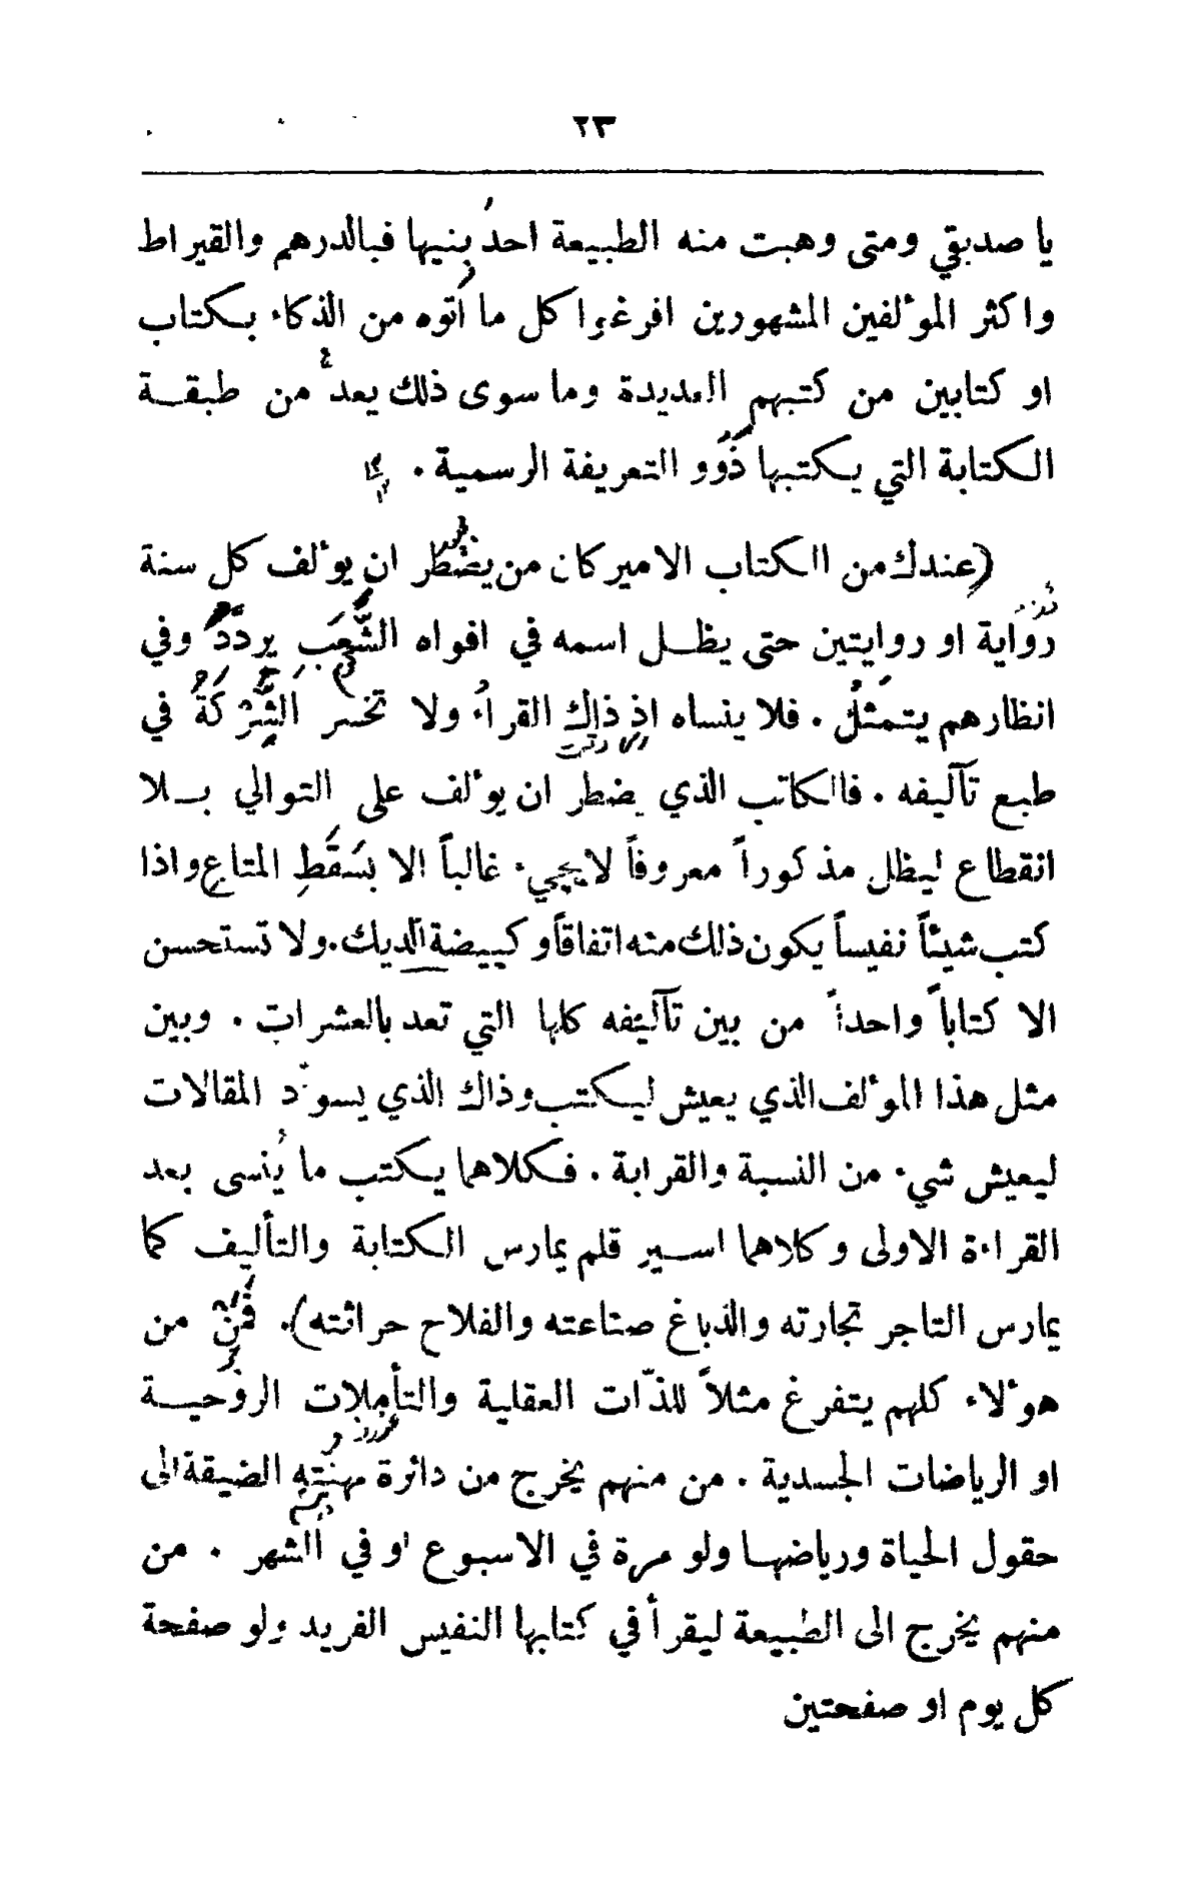 ٢٣
يا صديقي ومتى وهبت منه الطبيعة احدُ بنيها فبالدرهم والقيراط
واكثر المؤلفين المشهورين افرغوا كل ما أتوه من الذكاء بكتاب
او كتابين من كتبهم العديدة وما سوى ذلك يعد من طبقة
الكتابة التي يكتبها ذَوُو التعريفة الرسمية .
(عندك من الكتاب الاميركان من يضطر ان يؤلف كل سنة
رواية او روايتين حتى يظل اسمه في افواه الشَّعَبِ يردَّدُ وفي
انظارهم يتمَثَلُ . فلا ينساه اذ ذاك القراءُ ولا تخسر الشَّرْكَةُ في
طبع تآليفه . فالكاتب الذي يضطر ان يؤلف على التوالي بلا
انقطاع ليظل مذكوراً معروفاً لا يجيء غالباً الا بسَقَطِ المتاع واذا
كتب شيئاً نفيساً يكون ذلك منه اتفاقاً وكبيضة الديك. ولا تستحسن
الا كتاباً واحداً من بين تآليفه كلها التي تعد بالعشرات . وبين
مثل هذا المؤلف الذي يعيش ليكتب وذاك الذي يسوّد المقالات
ليعيش شيء من النسبة والقرابة . فكلاهما يكتب ما يُنسى بعد
القراءة الاولى وكلاهما اسير قلم يمارس الكتابة والتأليف كما
يمارس التاجر تجارته والدباغ صناعته والفلاح حراثته). فَمَنْ من
هؤلاء كلهم يتفرغ مثلاً للذّات العقلية والتأملات الروحية
او الرياضات الجسدية . من منهم يخرج من دائرة مهنَتِهِ الضيقة الى
حقول الحياة ورياضها ولو مرة في الاسبوع او في الشهر . من
منهم يخرج الى الطبيعة ليقرأ في كتابها النفيس الفريد ولو صفحة
كل يوم او صفحتين